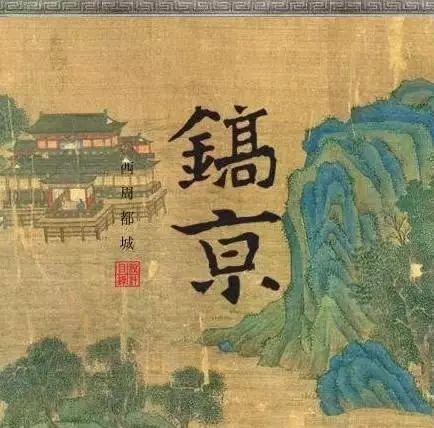 鎬京
西周都城